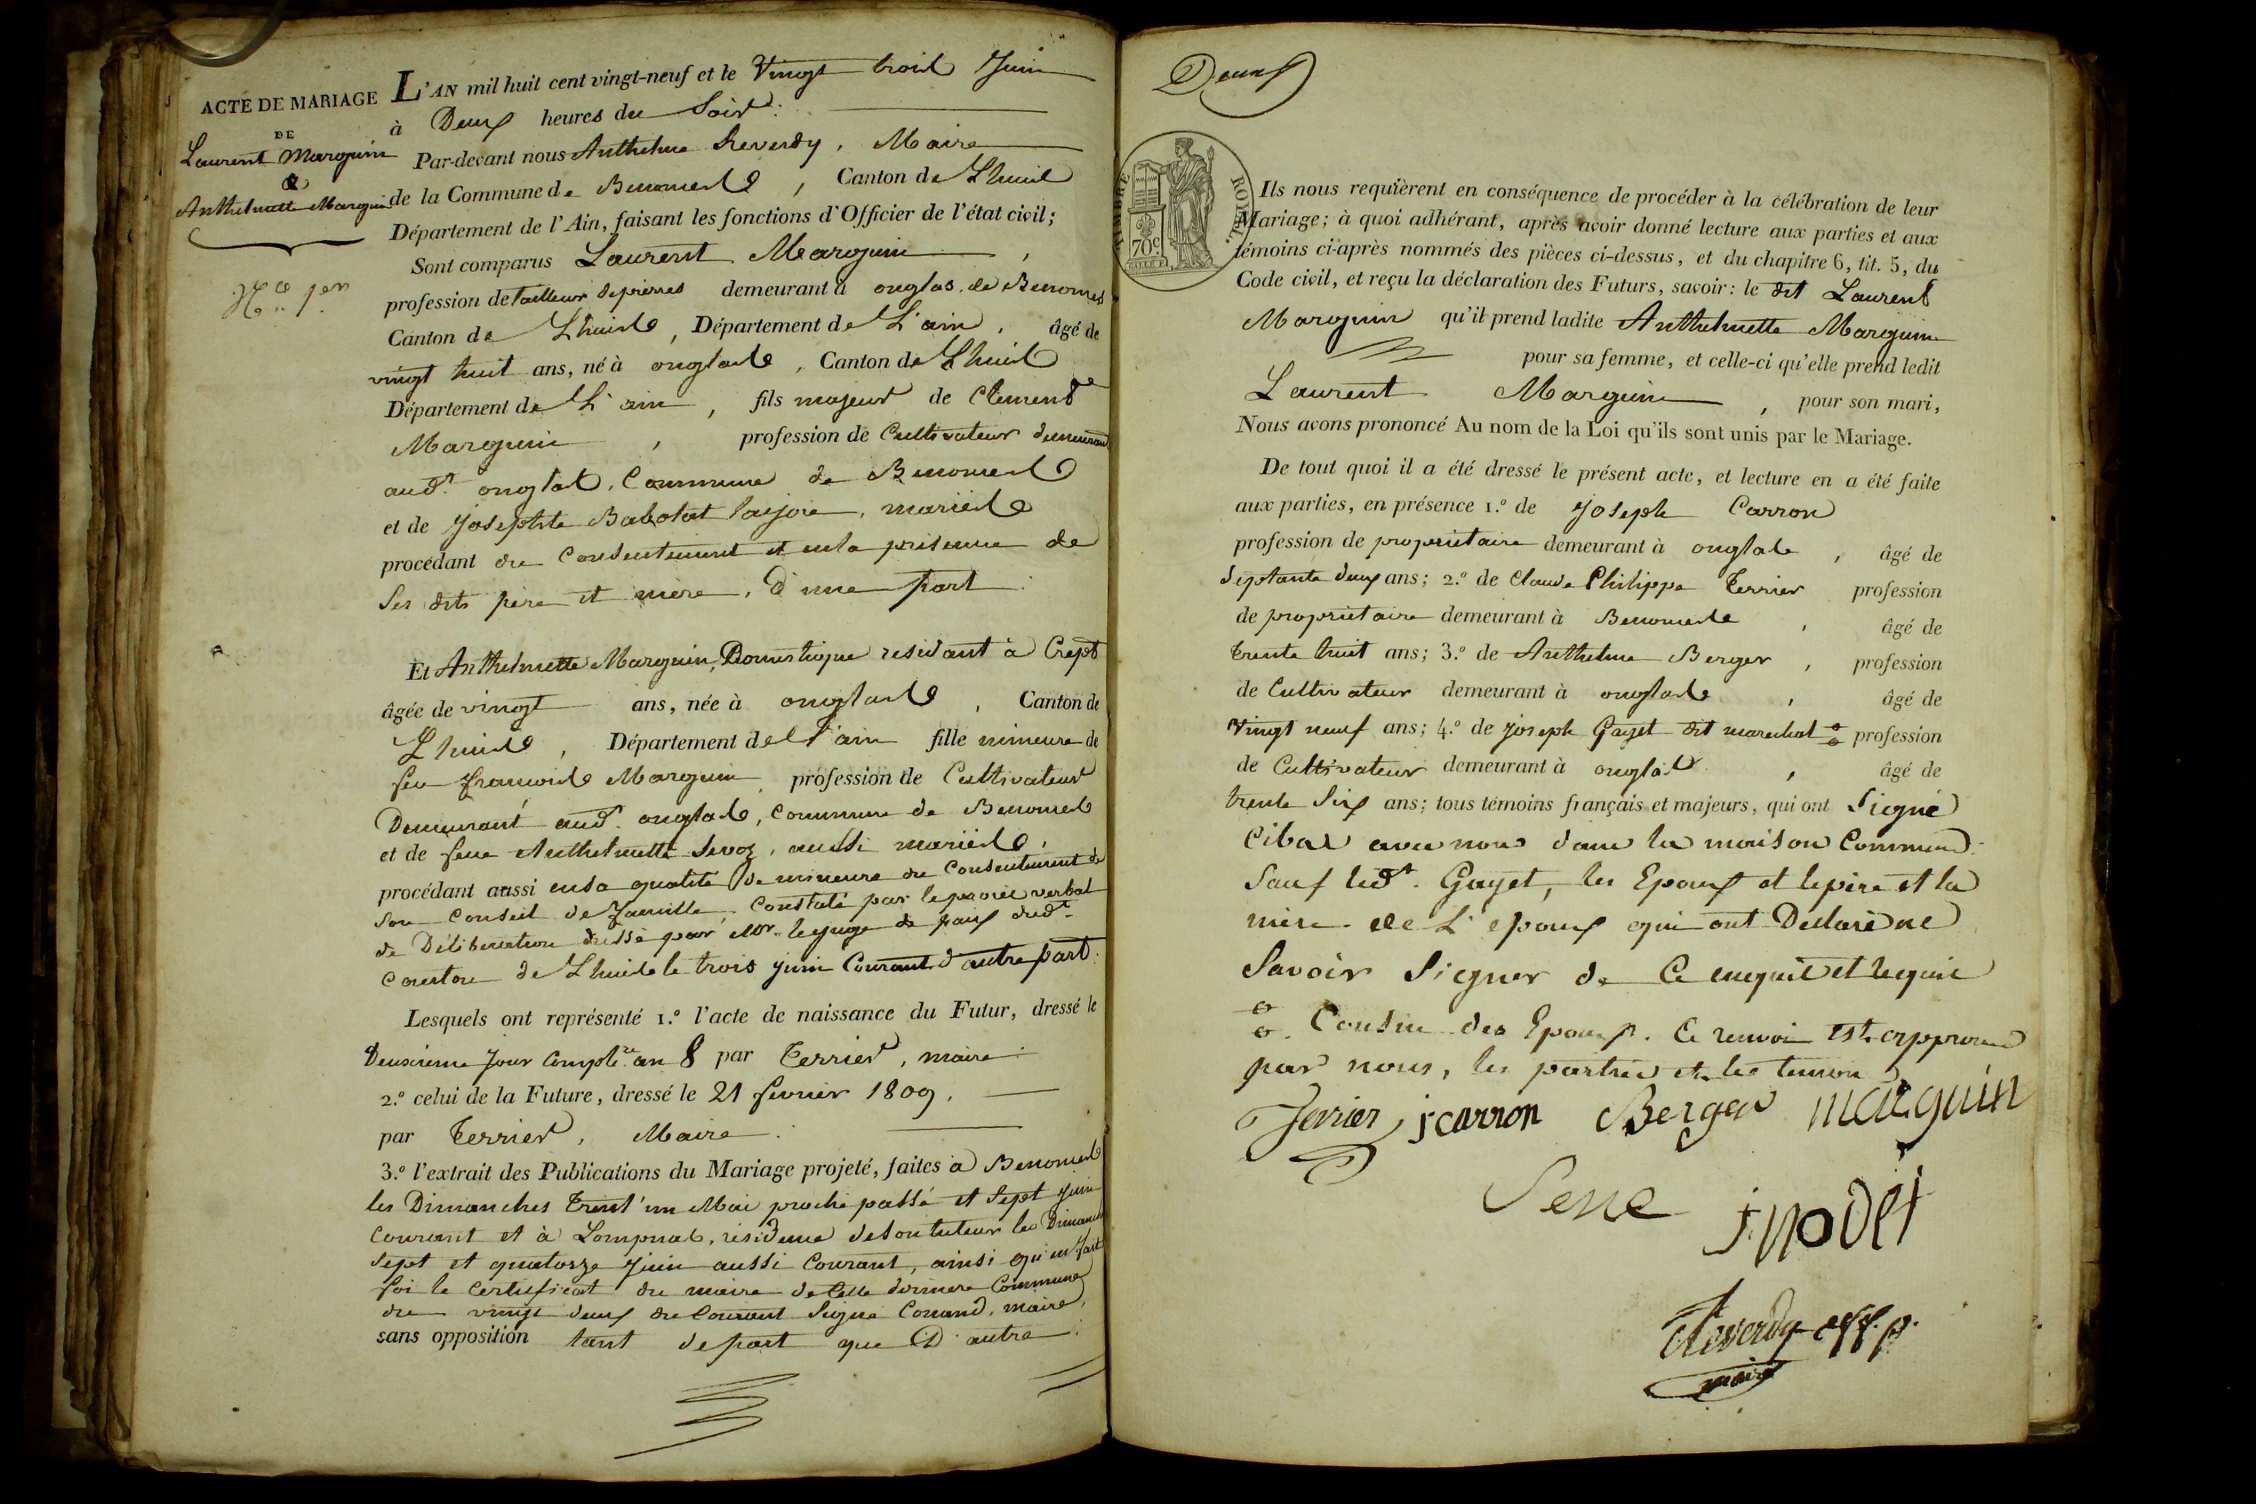 ACTE DE MARIAGE
DE
Laurent Marguin
&
Anthelmette Marguin
N.º 1er
L'AN mil huit cent vingt-neuf et le Vingt trois Juin
à Deux heures du Soir.
Par-devant nous Anthelme Reverdy, Maire
de la Commune de Benonces, Canton de Lhuis
Département de l'Ain, faisant les fonctions d'Officier de l'état civil;
Sont comparus Laurent Marguin,
profession de tailleur de pierres demeurant à onglas, de Benonces
Canton de Lhuis, Département de L'ain, âgé de
vingt huit ans, né à onglas, Canton de Lhuis
Département de L'ain, fils majeur de Clement
Marguin, profession de Cultivateur demeurant
aud.t onglas, Commune de Benonces
et de Josephte Babolat lajoie, mariés
procédant du Consentement et en la présence de
Ses dits père et mère, D'une part.
Et Anthelmette Marguin, Domestique residant à Crept
âgée de vingt ans, née à onglas, Canton de
Lhuis, Département de L'ain fille mineure de
feu francois Marguin, profession de Cultivateur
Demeurant aud.t onglas, Commune de Benonces
et de feue Anthelmette Savoz, aussi mariés,
procédant aussi en sa qualité de mineure du Consentement de
Son Conseil de famille, Constaté par le procès verbal
de Délibération dressé par Mr. le juge de paix dud.t
Canton de Lhuis le trois juin Courant D'autre part.
Lesquels ont représenté 1.º l'acte de naissance du Futur, dressé le
Deuxième Jour Complre. an 8 par Terrier, maire.
2.º celui de la Future, dressé le 21 fevrier 1809,
par Terrier, Maire.
3.º l'extrait des Publications du Mariage projeté, faites à Benonces
les Dimanches Trent'un Mai proche passé et Sept Juin
Courant et à Lompnas, résidence de Son tuteur les Dimanches
Sept et quatorze Juin aussi Courant, ainsi qu'en fait
foi le Certificat du maire de Cette dernière Commune
du vingt deux du Courant Signé Conand, maire,
sans opposition tant de part que D'autre.
Deux
TIMBRE ROYAL.
70c.
Ils nous requièrent en conséquence de procéder à la célébration de leur
Mariage; à quoi adhérant, après avoir donné lecture aux parties et aux
témoins ci-après nommés des pièces ci-dessus, et du chapitre 6, tit. 5, du
Code civil, et reçu la déclaration des Futurs, savoir: le dit Laurent
Marguin qu'il prend ladite Anthelmette Marguin
pour sa femme, et celle-ci qu'elle prend ledit
Laurent Marguin, pour son mari,
Nous avons prononcé Au nom de la Loi qu'ils sont unis par le Mariage.
De tout quoi il a été dressé le présent acte, et lecture en a été faite
aux parties, en présence 1.º de Joseph Carron
profession de propriétaire demeurant à onglas, âgé de
Septante deux ans; 2.º de Claude Philippe Terrier profession
de propriétaire demeurant à Benonces, âgé de
Trente huit ans; 3.º de Anthelme Berger, profession
de Cultivateur demeurant à onglas, âgé de
Vingt neuf ans; 4.º de Joseph Guyet dit marechal profession
de Cultivateur demeurant à onglas, âgé de
trente Six ans; tous témoins français et majeurs, qui ont Signé
Cibas avec nous dans la maison Commune.
Sauf led.t Guyet, les Epoux et le père et la
mère de L'epoux qui ont Déclaré ne
Savoir Signer de Ce enquis et requis
Cousin des Epoux. Ce renvoi est approuvé
par nous, les parties et les temoins
Terrier jcarron Berger marguin
Sene
Reverdy
maire